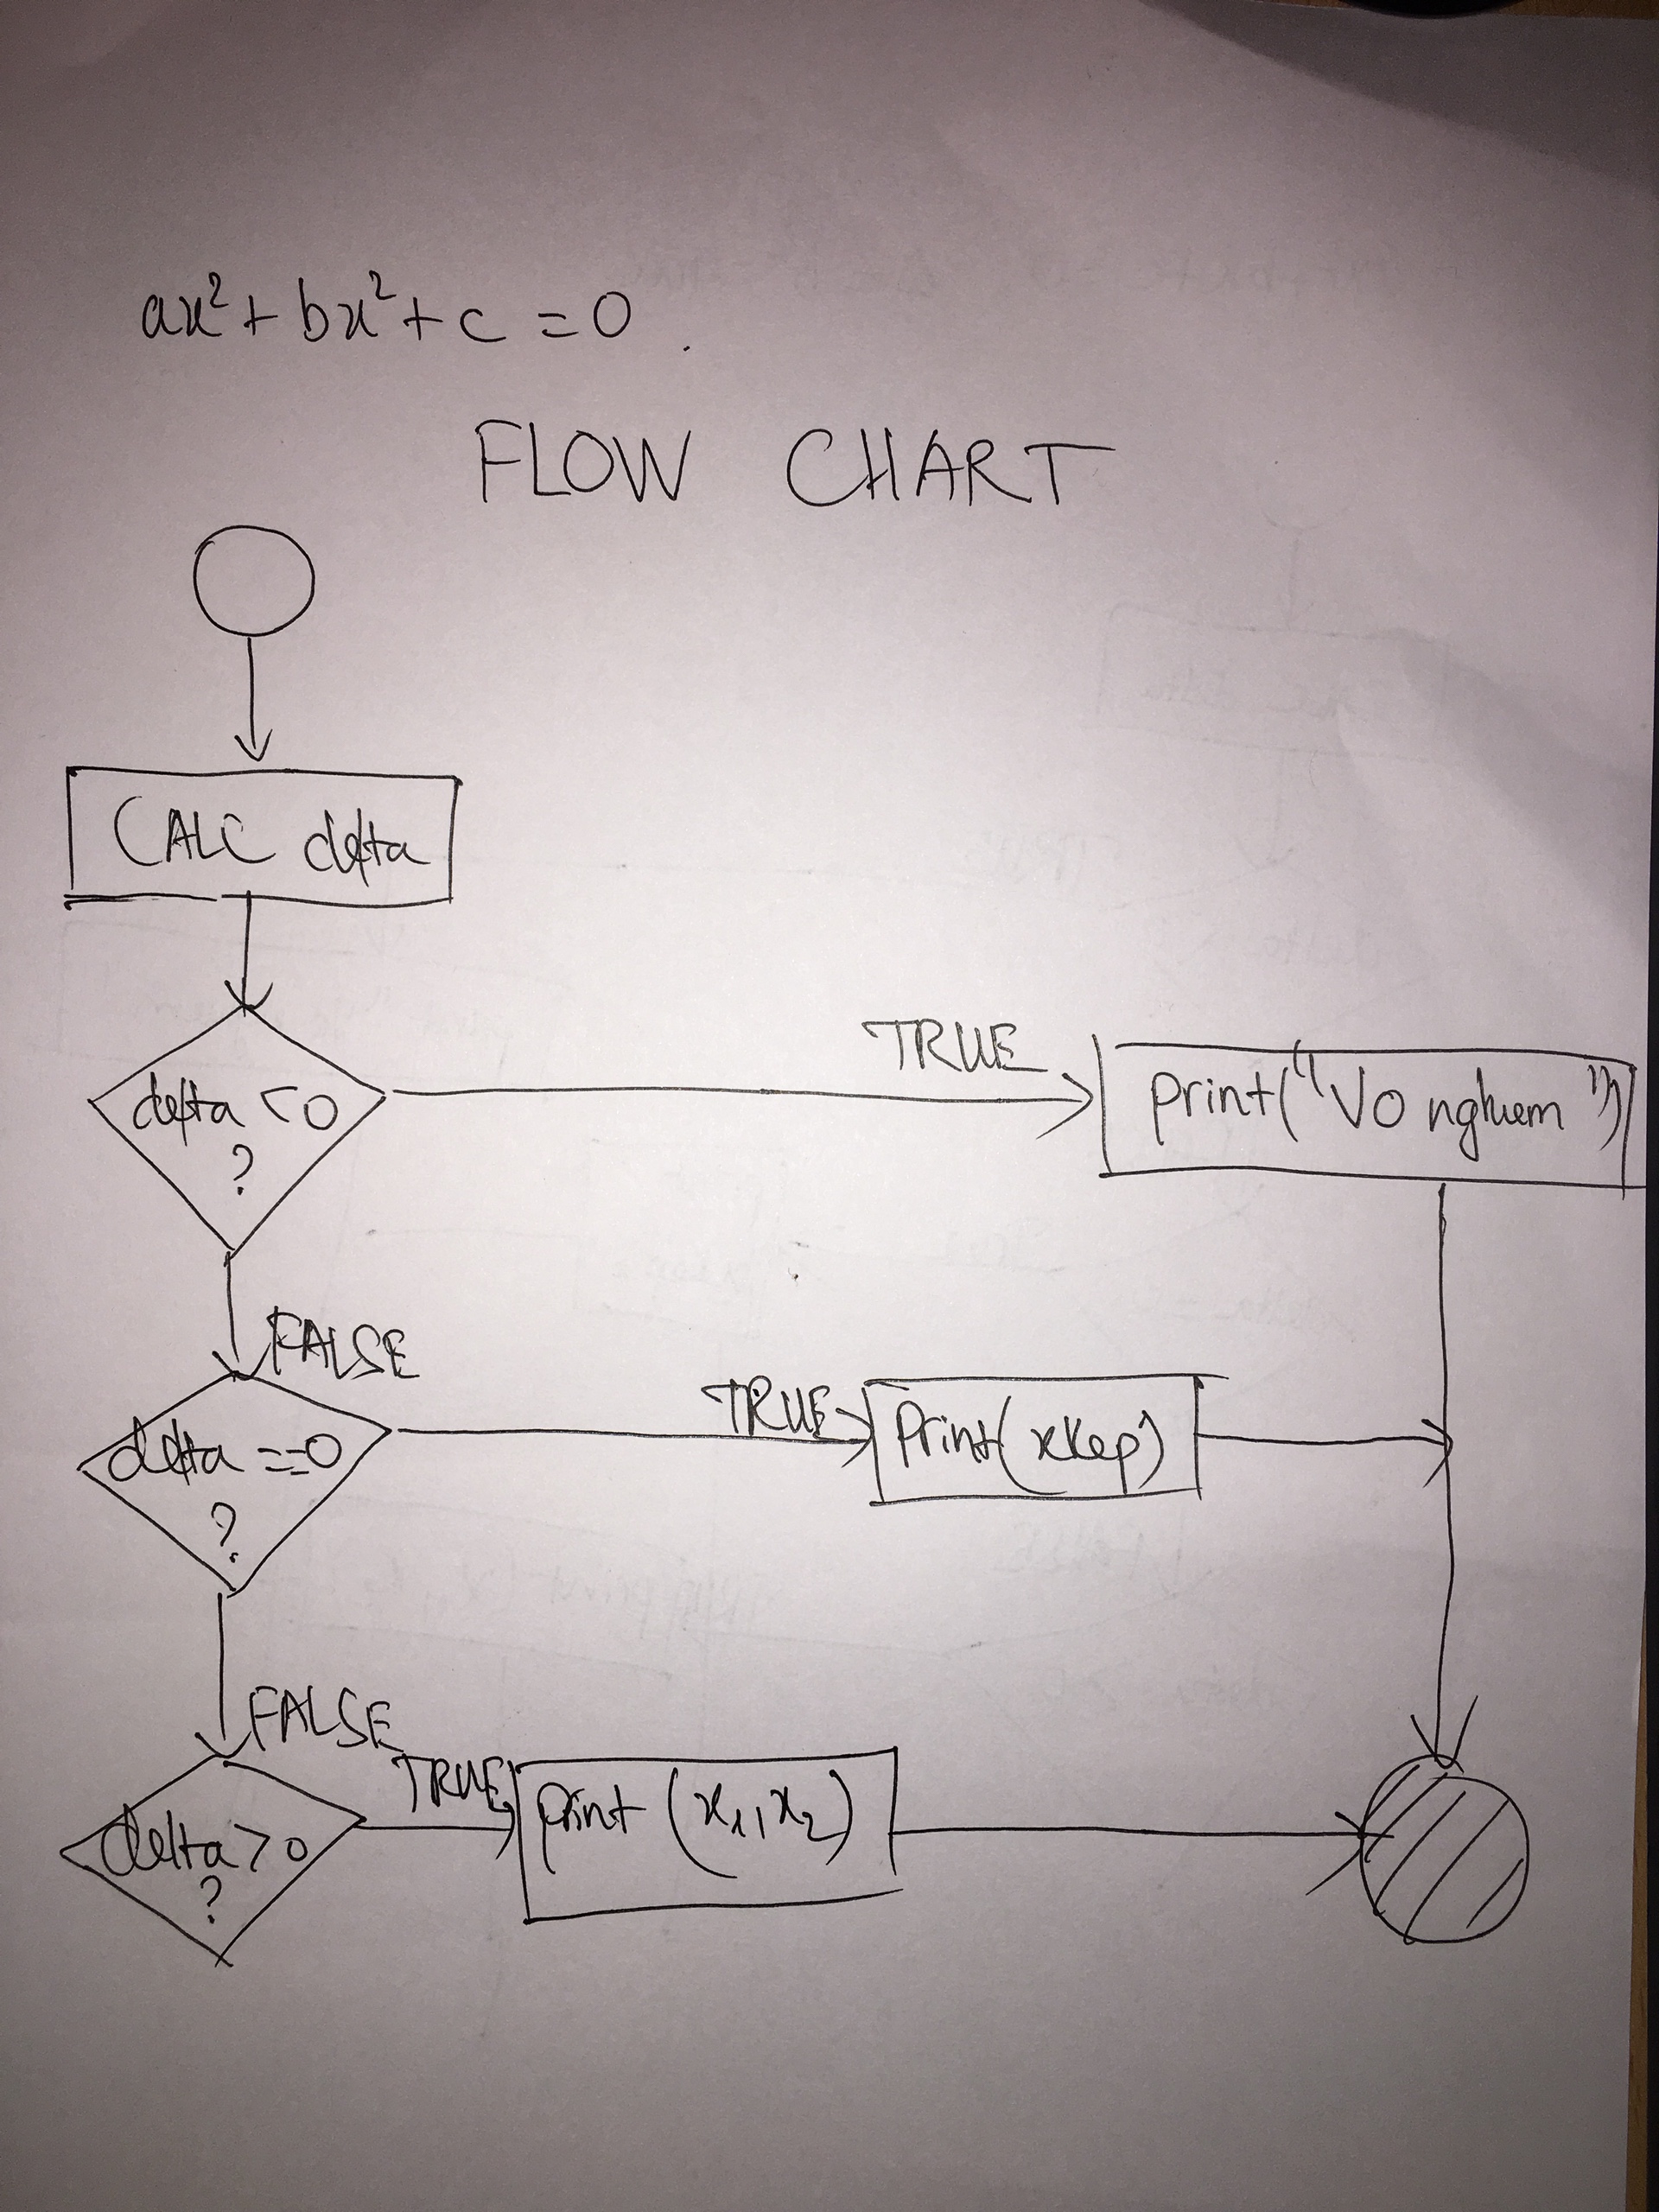 ax²+ bx²+ c = 0.
FLOW CHART
CALC delta
delta < 0
?
TRUE
print("Vo nghiem")
FALSE
delta ==0
?
TRUE
Print(xkep)
FALSE
delta > 0
?
TRUE
print (x₁, x₂)